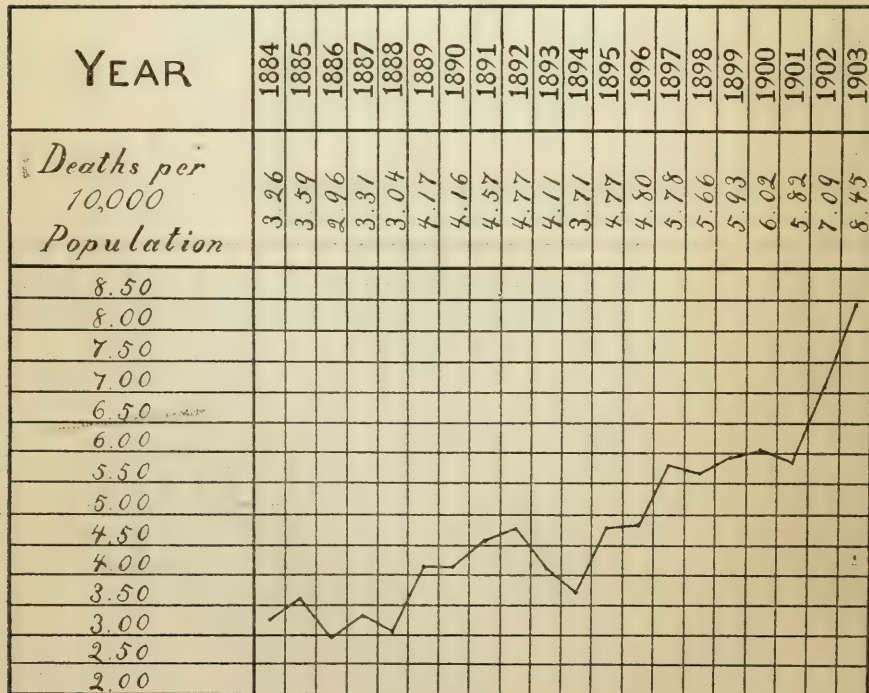 YEAR 1884 1885 1886 1887 1888 1889 1890 1891 1892 1893 1894 1895 1896 1897 1898 1899 1900 1901 1902 1903
Deaths per
10,000
Population
3.26 3.59 2.96 3.31 3.04 4.17 4.16 4.57 4.77 4.11 3.71 4.77 4.80 5.78 5.66 5.93 6.02 5.82 7.09 8.45
8.50
8.00
7.50
7.00
6.50
6.00
5.50
5.00
4.50
4.00
3.50
3.00
2.50
2.00